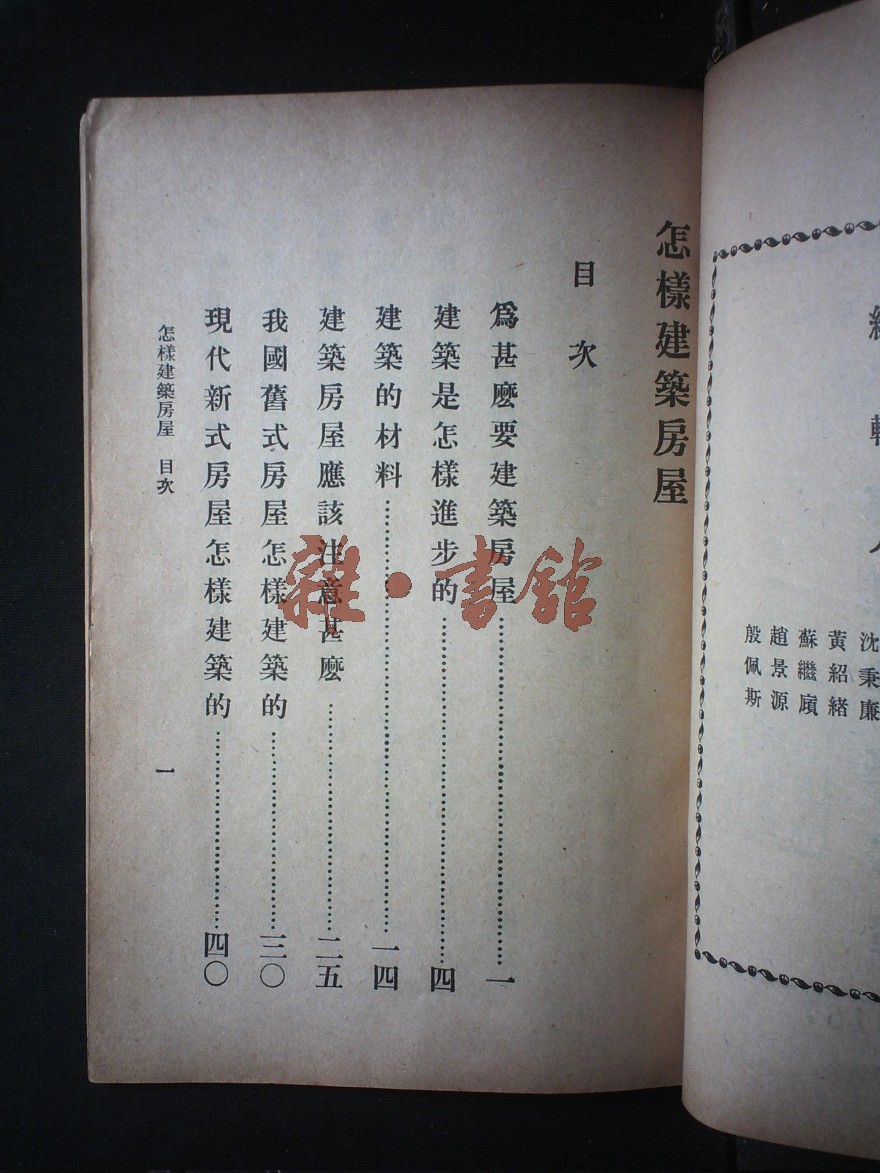 沈秉廉
黃紹緒
蘇繼廎
趙景源
殷佩斯
怎樣建築房屋
目次
爲甚麽要建築房屋……………………一
建築是怎樣進步的……………………四
建築的材料……………………一四
建築房屋應該注意甚麽……………………二五
我國舊式房屋怎樣建築的……………………三〇
現代新式房屋怎樣建築的……………………四〇
怎樣建築房屋 目次
一
雜·書館